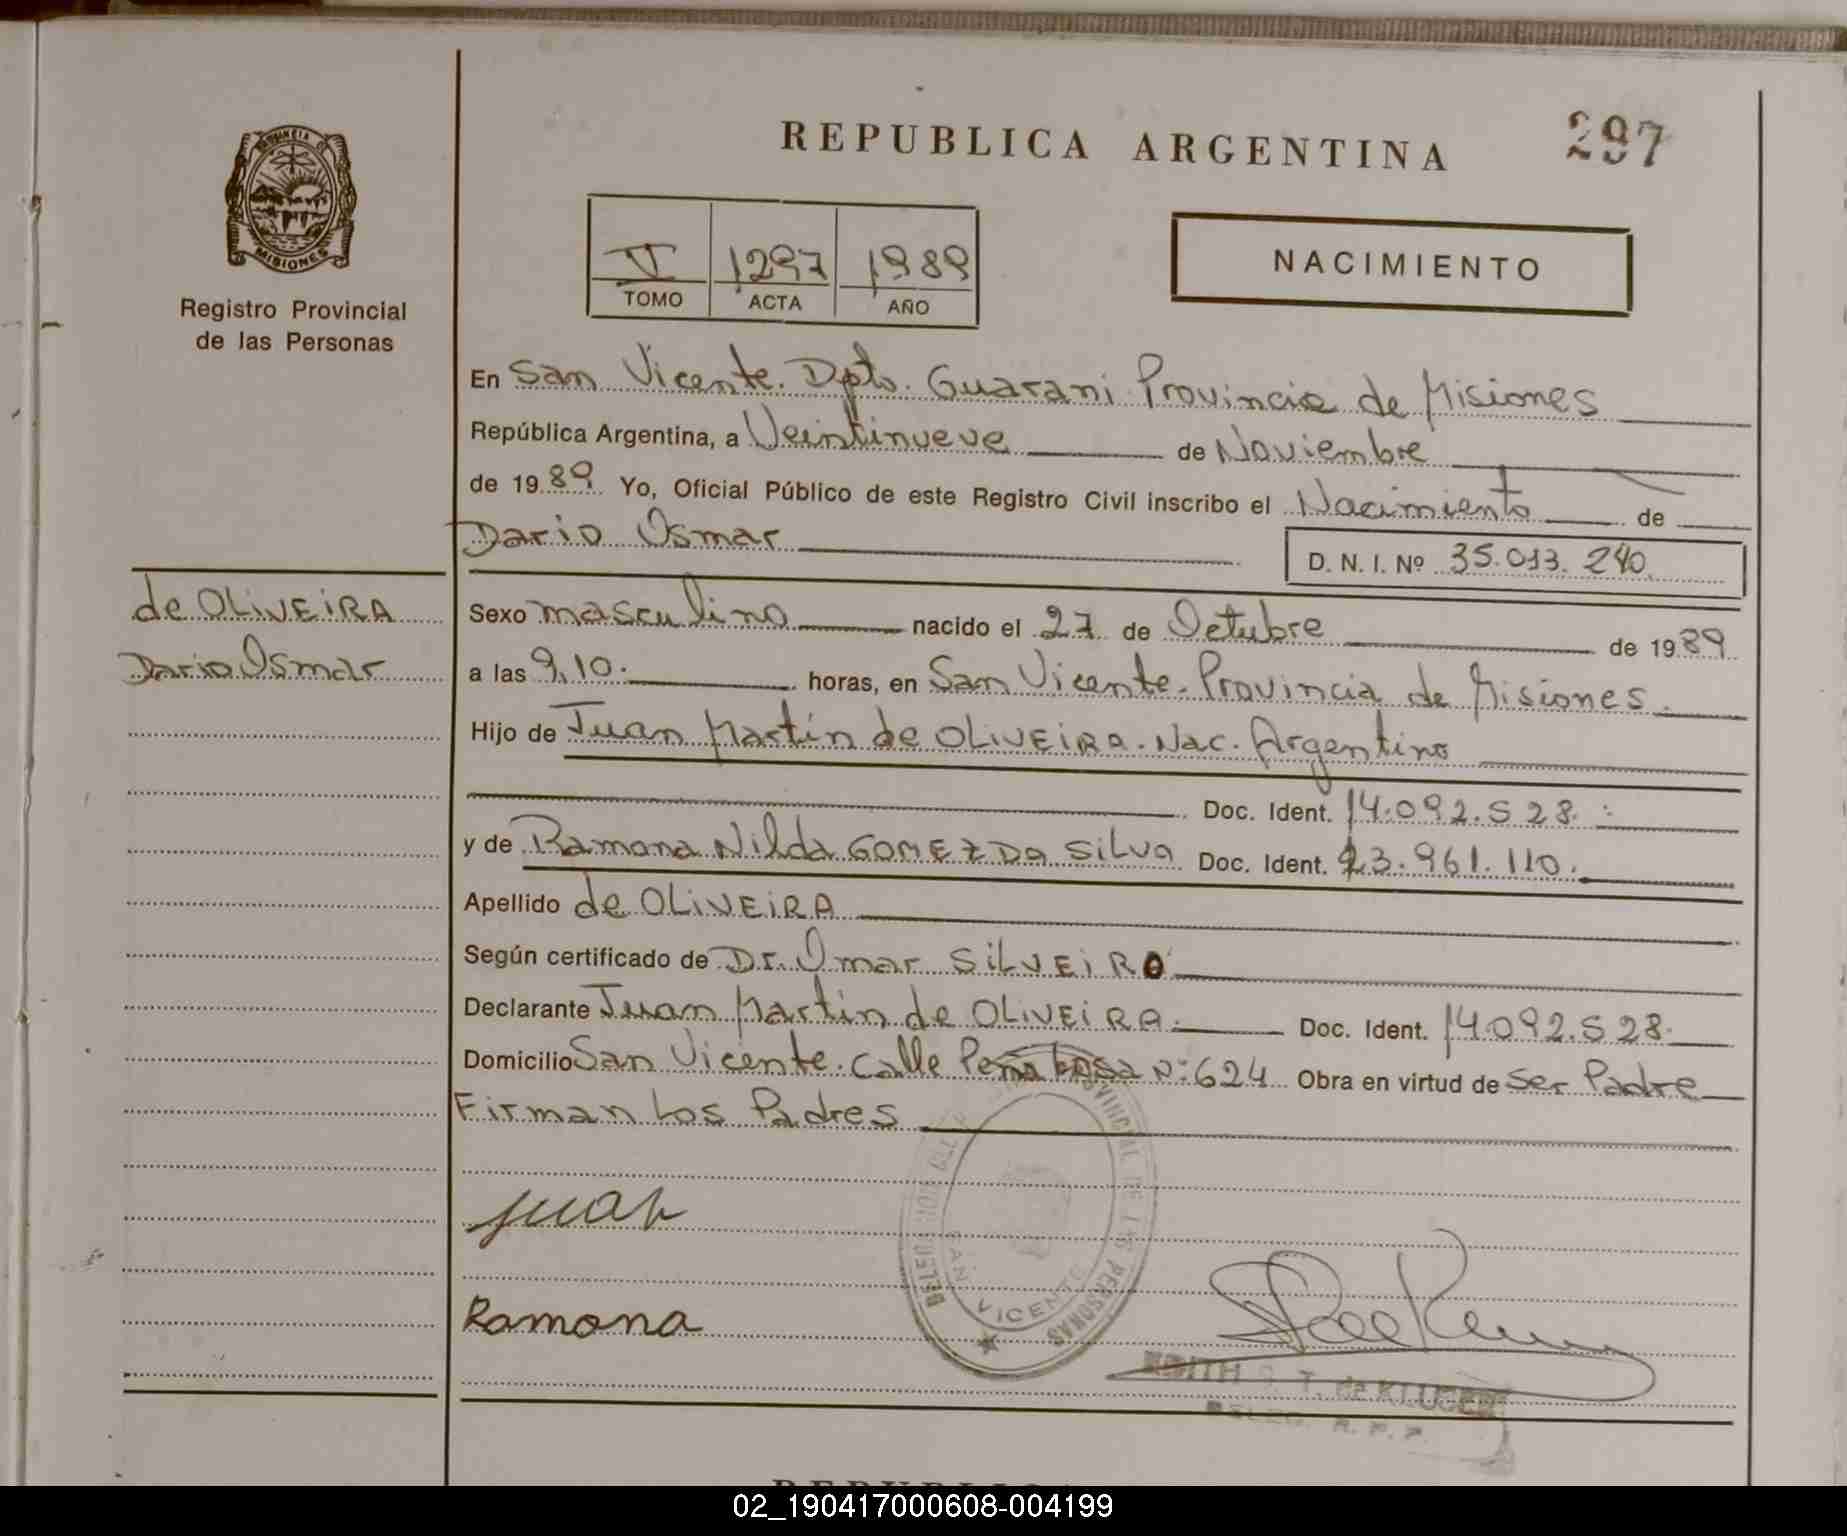 REPUBLICA ARGENTINA
297
PROVINCIA DE
MISIONES
Registro Provincial
de las Personas
V 1297 1989
TOMO ACTA AÑO
NACIMIENTO
En San Vicente. Dpto. Guarani Provincia de Misiones
República Argentina, a Veintinueve de Noviembre
de 1989 Yo, Oficial Público de este Registro Civil inscribo el Nacimiento de
Dario Osmar
D. N. I. Nº 35.013.240.
de OLiVEiRA
Dario Osmar
Sexo masculino nacido el 27 de Octubre de 1989
a las 9,10. horas, en San Vicente. Provincia de Misiones.
Hijo de Juan Martin de OLiVEiRA. Nac. Argentino
Doc. Ident. 14.092.528.
y de Ramona Nilda GOMEZ DA SiLVA Doc. Ident. 23.961.110.
Apellido de OLiVEiRA
Según certificado de Dr. Omar SiLVEiRO
Declarante Juan Martin de OLiVEiRA. Doc. Ident. 14.092.528.
Domicilio San Vicente. Calle Peña Nº 624 Obra en virtud de ser Padre
Firman Los Padres
Juan
Ramona
DELEGACION DEL REGISTRO PROVINCIAL DE LAS PERSONAS
SAN VICENTE
EDITH T. de KLUGER
DELEG. R. P. P.
02_190417000608-004199